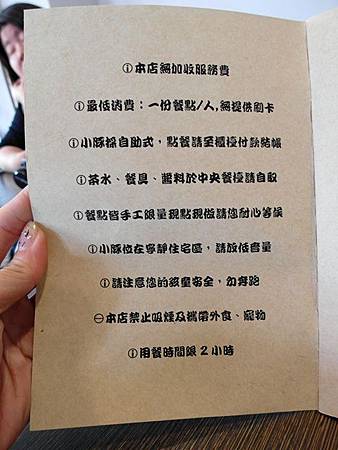 ⓘ本店無加收服務費
ⓘ最低消費：一份餐點/人,無提供刷卡
ⓘ小豚採自助式，點餐請至櫃檯付款結帳
ⓘ茶水、餐具、醬料於中央餐檯請自取
ⓘ餐點皆手工限量現點現做請您耐心等候
ⓘ小豚位在寧靜住宅區，請放低音量
ⓘ請注意您的孩童安全，勿奔跑
⊖本店禁止吸煙及攜帶外食、寵物
ⓘ用餐時間限2小時